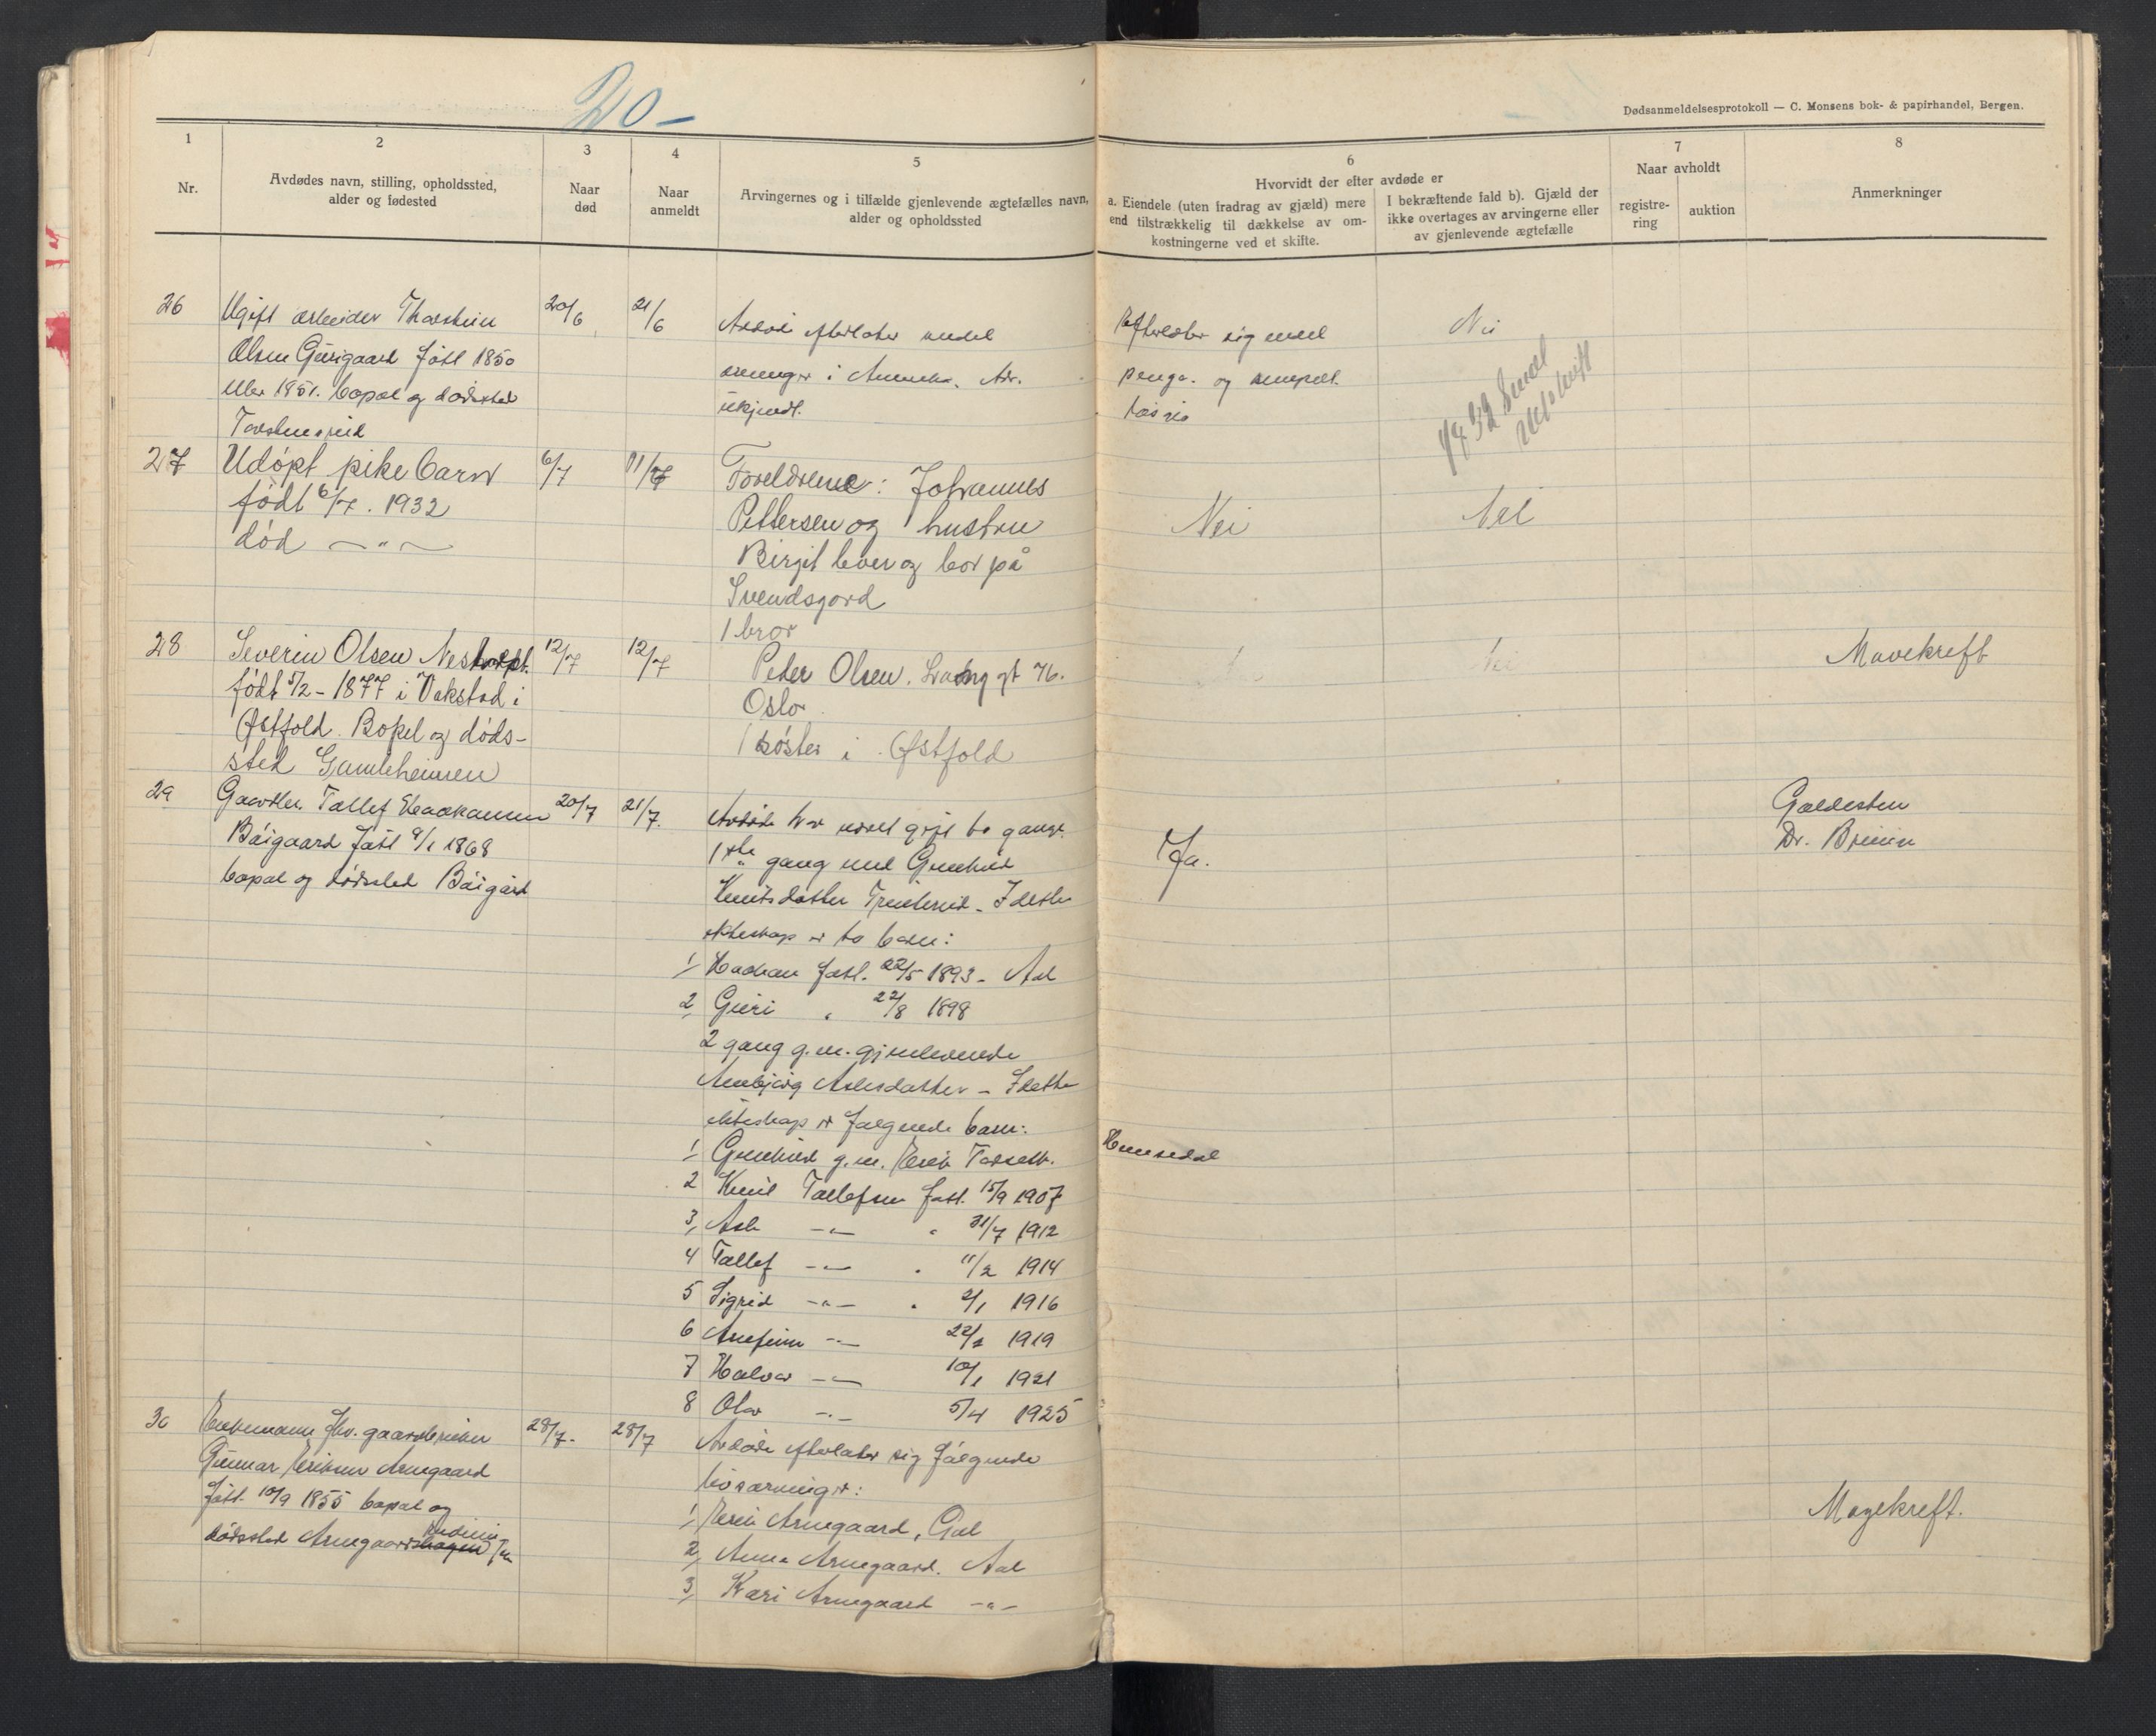 20-
Dødsanmeldelsesprotokoll — C. Monsens bok- & papirhandel, Bergen.
1
Nr.
2
Avdødes navn, stilling, opholdssted,
alder og fødested
3
Naar
død
4
Naar
anmeldt
5
Arvingernes og i tilfælde gjenlevende ægtefælles navn,
alder og opholdssted
6
Hvorvidt der efter avdøde er
a. Eiendele (uten fradrag av gjæld) mere
end tilstrækkelig til dækkelse av om-
kostningerne ved et skifte.
I bekræftende fald b). Gjæld der
ikke overtages av arvingerne eller
av gjenlevende ægtefælle
7
Naar avholdt
registre-
ring
auktion
8
Anmerkninger
26
Ugift arbeider Thorstein
Olsen Gurigaard født 1850
eller 1851. bopæl og dødssted
20/6
21/6
Avdøde efterlater endel
arvinger i Amerika. Adr.
ukjendt.
Efterlater sig endel
penge. og
Nei
27
Udöpt pike barn
födt 6/7. 1932
död —"—
6/7
11/7
Foreldrene: Johannes
Pettersen og hustru
Birgit lever og bor på
Svendsgord
Nei
Nei
28
Severin Olsen
födt 5/2 - 1877 i Vakstad i
Østfold. Bopel og döds-
sted Gamleheimen
12/7
12/7
1 bror
Peder Olsen. gt 76.
Oslo
1 söster i Østfold
Nei
Mavekreft
29
Gaardbr. Tollef Haakonsen
Båigaard født 9/1 1868
bopæl og dødssted Båigård
20/7
21/7.
Avdøde har været gift to gange.
1ste gang med Gunhild
Knutsdatter - I dette
ekteskap er to barn:
1/ Haakon født. 22/5 1893 - Aal
2/ Guri " 22/8 1898
2 gang g.m. gjenlevende
Asledatter - I dette
ekteskap er følgende barn:
1/ Gunhild g.m. Erik
Hemsedal
2 Knut Tollefsen født. 15/9 1907
3/ Asle —"— " 31/7 1912
4 Tollef —"— " 11/2 1914
5 Sigrid —"— " 2/1 1916
6 Arnfinn —"— 22/2 1919
7 Halvor —"— 10/1 1921
8 Olav —"— 5/4 1925
Ja.
Galdesten
Dr.
30
Enkemann fhv. gaardbruker
Gunnar Eriksen Arnegaard
født. 10/9 1855 bopæl og
dødssted Arnegaard
28/7.
28/7
Avdøde efterlater sig følgende
livsarvinger:
1/ Erik Arnegaard, Gol
2/ Anne Arnegaard. Aal
3/ Kari Arnegaard —"—
Magekreft.